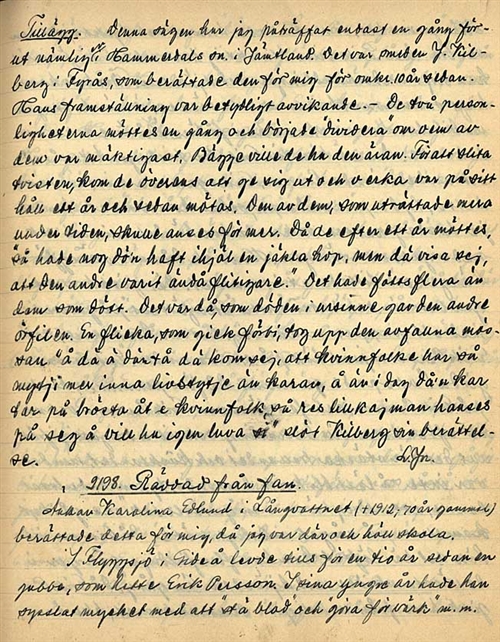 Tillägg. Denna sägen har jag påträffat endast en gång för-
ut nämligen i Hammerdals sn. i Jämtland. Det var smeden J. Kil-
berg i Fyrås, som berättade den för mig för omkr. 10 år sedan.
Hans framställning var betydligt avvikande. – De två person-
ligheterna möttes en gång och började "dividera" om vem av
dem var mäktigast. Bägge ville de ha den äran. För att slita
tvisten, kom de överens att ge sig ut och verka var på sitt
håll ett år och sedan mötas. Den av dem, som uträttade mera
under tiden, skulle anses för mer. Då de efter ett år möttes,
"så hade nog dö'n haft ihjäl en jäkla hop, men då visa sej,
att den andre varit ändå flitigare." Det hade fötts flera än
dem som dött. Det var då, som döden i ursinne gav den andre
örfilen. En flicka, som gick förbi, tog upp den avfallna mös-
san "å då ä därtå dä kom sej, att kvinnfolke har så
mytji mer inna livstytje än karan, å än i dag dån kar
tar på brösta åt e kvinnfolk så res
på seg å vill ha igen luva si" slöt Kilberg sin berättel-
se. L. Jn.
2198. Räddad från fan.
Änkan Karolina Edlund i Långvattnet (+1912, 70 år gammal)
berättade detta för mig, då jag var där och höll skola.
I Flyggsjö i Gideå levde tills för en tio år sedan en
gubbe, som hette Erik Persson. I sina yngre år hade han
sysslat mycket med att "stä blod" och "göra för värk" m.m.